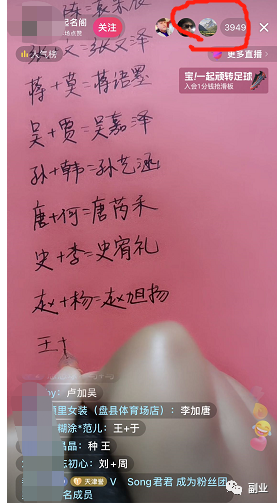 起名阁
场点赞
关注
3949
人气榜
更多直播
宝/一起顽转足球
入会1分钱抢滑板
蒋+莫=蒋语墨
吴+贾=吴嘉泽
孙+韩=孙艺涵
唐+何=唐芮禾
史+李=史宥礼
赵+杨=赵旭扬
王+
卢加吴
里女装(盘县体育场店): 李加唐
糊涂*范儿: 王+于
晶: 种 王
初心: 刘+周
天津蟹 V Song君君 成为粉丝团
名成员
副业